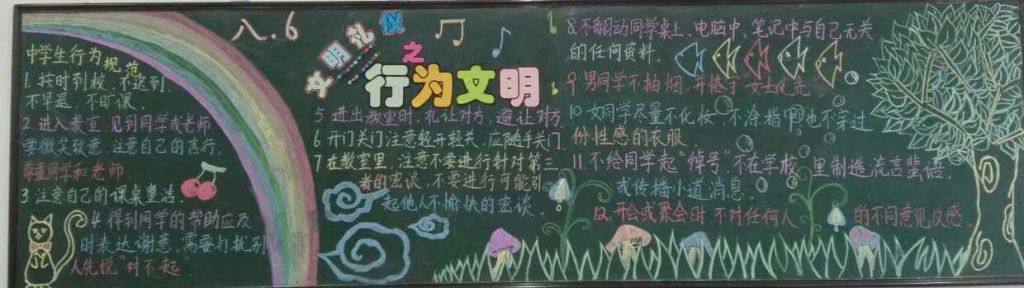 八.6
文明礼仪
之
行为文明
中学生行为规范
1.按时到校,不迟到,
不早退,不旷课.
2.进入教室,见到同学或老师
微笑致意,注意自己的言行,
尊重同学和老师
3.注意自己的课桌整洁.
4.得到同学的帮助应及
时表达谢意,需要打扰别
人先说"对不起"
5.进出教室时,礼让对方,避让对方
6.开门关门注意轻开轻关,应随手关门.
7.在教室里,注意不要进行针对第三
者的密谈,不要进行可能引
起他人不愉快的密谈.
8.不翻动同学桌上、电脑中、笔记中与自己无关
的任何资料.
9.男同学不抽烟,并恪守"女士优先"
10.女同学尽量不化妆,不涂指甲也不穿过
份性感的衣服
11.不给同学起"绰号",不在学校里制造流言蜚语,
或传播小道消息.
12.开会或聚会时,不对任何人的不同意见反感.